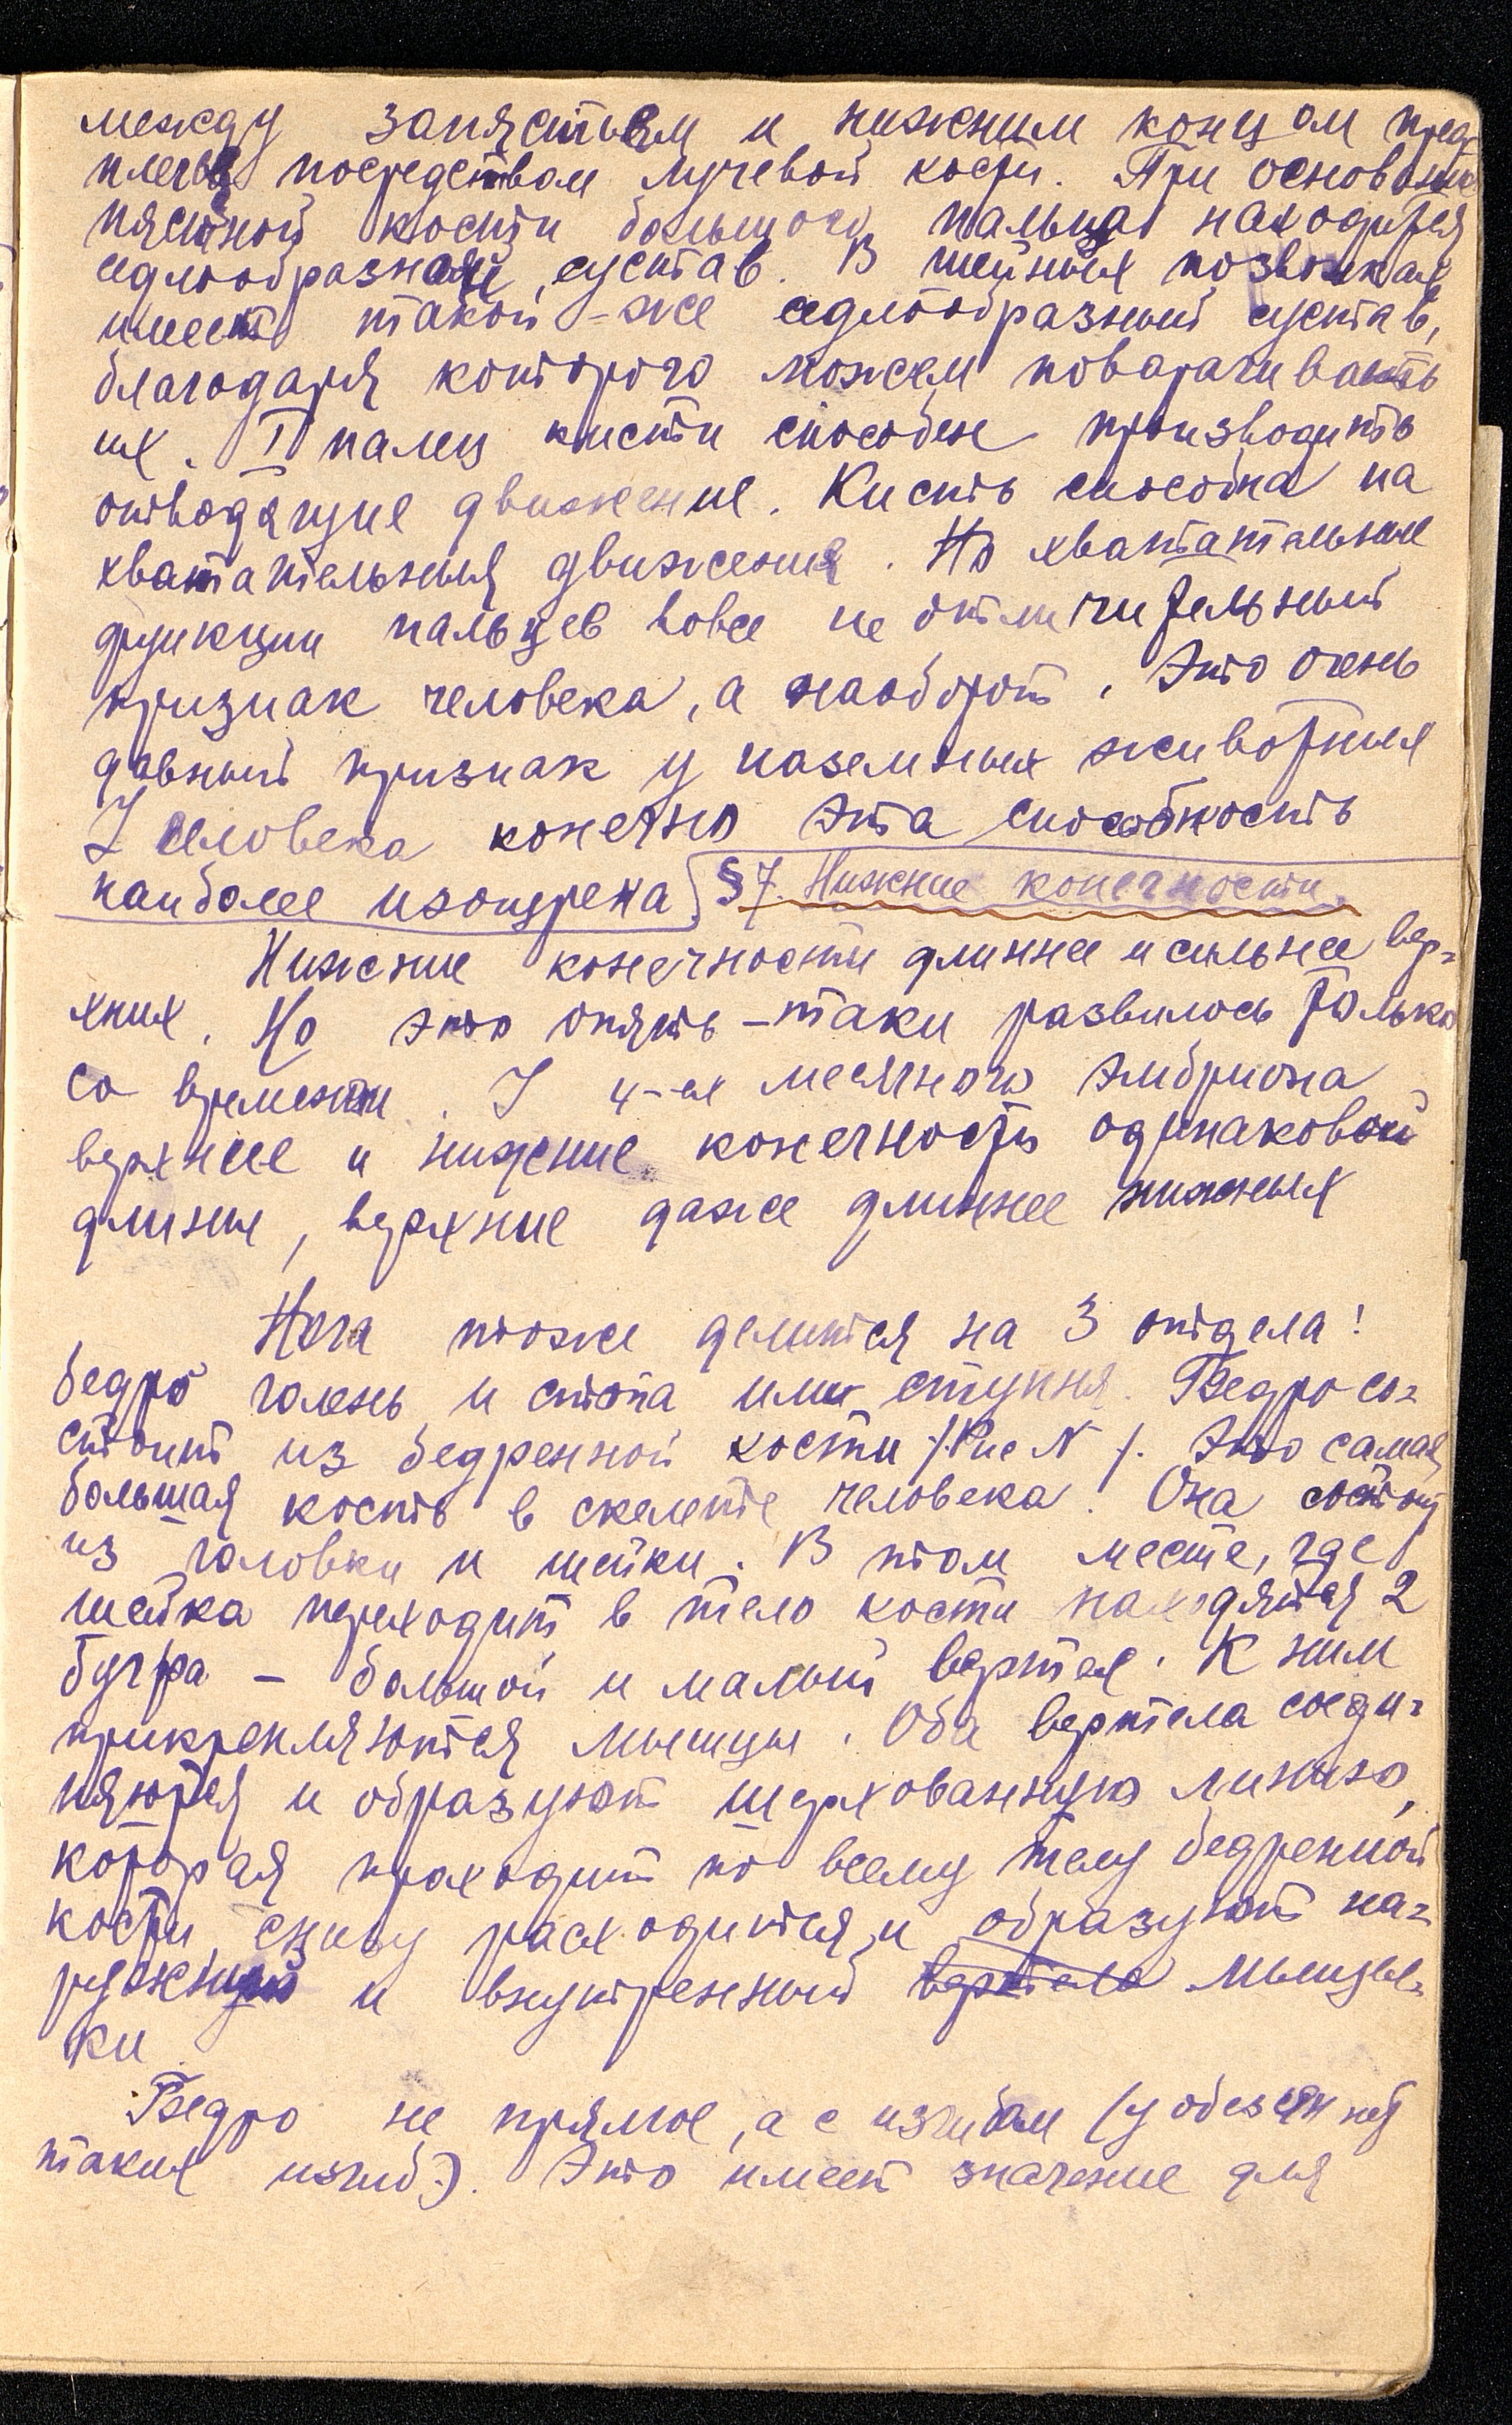 между запястьем и нижним концом пред-
плечья посредством лучевой кости. При основании
пястной кости большого пальца находится
седлообразный сустав. В шейных позвонках
имеет такой-же седлообразный сустав,
благодаря которого можем поварачивать
их. I палец кисти способен производить
отводящие движение. Кисть способна на
хватательныя движения. Но хватательные
функции пальцев вовсе не отличительный
признак человека, а наоборот. Это очень
давный признак у наземных животных
У человека конечно эта способность
наиболее изощрена. §7. Нижние конечности.
Нижние конечности длиннее и сильнее вер-
хних. Но это опять-таки развилось только
со времени. У 4-ех месячного эмбриона
верхние и нижние конечности одинаковой
длины, верхние даже длиннее нижных
Нога тоже делится на 3 отдела!
бедро голень и стопа или ступня. Бедро со-
стоит из бедренной кости /Рис N /. Это самая
большая кость в скелете человека. Она состоит
из головки и шейки. В том месте, где
шейка переходит в тело кости находятся 2
бугра - большой и малый вертел. К ним
прикрепляются мышцы. Оба вертела соеди-
няются и образуют шерхованную линию,
которая проходит по всему телу бедренной
кости, снизу расходится и образуют на-
ружный и внутренный вертела мыщел-
ки
Бедро не прямое, а с изгибом (у обезян нет
таких изгиб.). Это имеет значение для